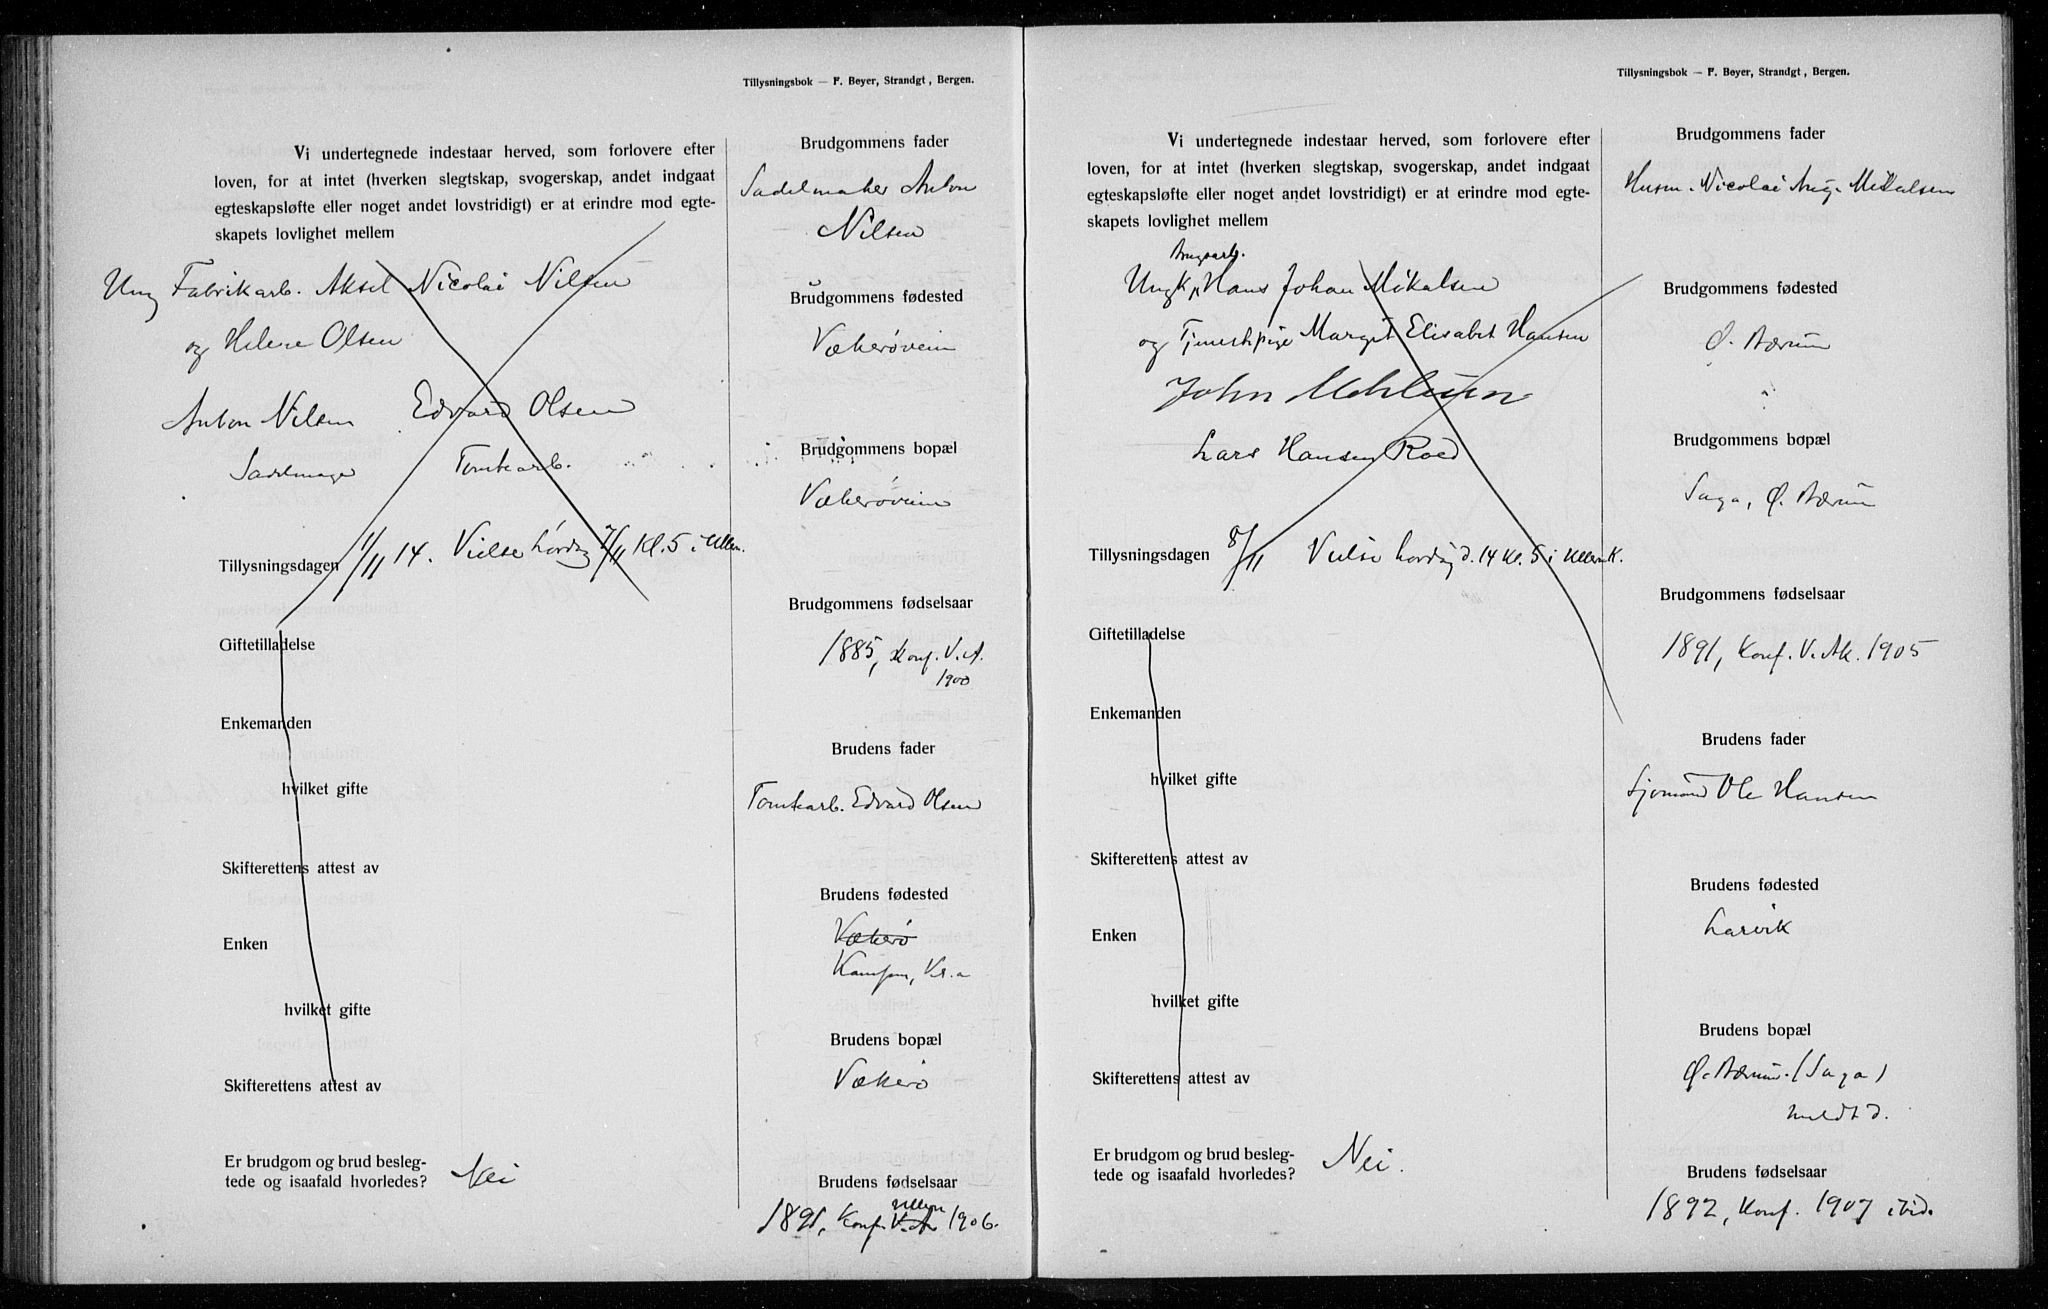 Tillysningsbok — F. Beyer, Strandgt , Bergen.
Vi undertegnede indestaar herved, som forlovere efter
loven, for at intet (hverken slegtskap, svogerskap, andet indgaat
egteskapsløfte eller noget andet lovstridigt) er at erindre mod egte-
skapets lovlighet mellem
Ung Fabrikarb. Aksel Nicolai Nilsen
og Helene Olsen
Anton Nilsen Edvard Olsen
Sadelmager Tomtearb.
Tillysningsdagen 1/11 14. Vielse Lørdag 7/11 Kl. 5 i Ullern.
Giftetilladelse
Enkemanden
hvilket gifte
Skifterettens attest av
Enken
hvilket gifte
Skifterettens attest av
Er brudgom og brud besleg-
tede og isaafald hvorledes? Nei
Brudgommens fader
Sadelmaker Anton
Nilsen
Brudgommens fødested
Vækerøveien
Brudgommens bopæl
Vækerøveien
Brudgommens fødselsaar
1885, Konf. V. A.
1900
Brudens fader
Tomtearb. Edvard Olsen
Brudens fødested
Vækerø
Kampen, Kr.a
Brudens bopæl
Vækerø
Brudens fødselsaar
Ullern
1891, Konf. V. A. 1906.
Tillysningsbok — F. Beyer, Strandgt , Bergen.
Vi undertegnede indestaar herved, som forlovere efter
loven, for at intet (hverken slegtskap, svogerskap, andet indgaat
egteskapsløfte eller noget andet lovstridigt) er at erindre mod egte-
skapets lovlighet mellem
Brugsarb.
Ungk. Hans Johan Mikalsen
og Tjenestpige Margit Elisabet Hansen
John
Lars Hansen Roed
Tillysningsdagen 8/11 Vielse Lørdag d. 14 Kl. 5 i Ullern K.
Giftetilladelse
Enkemanden
hvilket gifte
Skifterettens attest av
Enken
hvilket gifte
Skifterettens attest av
Er brudgom og brud besleg-
tede og isaafald hvorledes? Nei.
Brudgommens fader
Husm. Nicolai Aug. Mikalsen
Brudgommens fødested
Ø. Bærum
Brudgommens bopæl
Saga, Ø. Bærum
Brudgommens fødselsaar
1891, Konf. V. Ak. 1905
Brudens fader
Sjømand Ole Hansen
Brudens fødested
Larvik
Brudens bopæl
Ø. Bærum. (Saga)
meldt d.
Brudens fødselsaar
1892, Konf. 1907